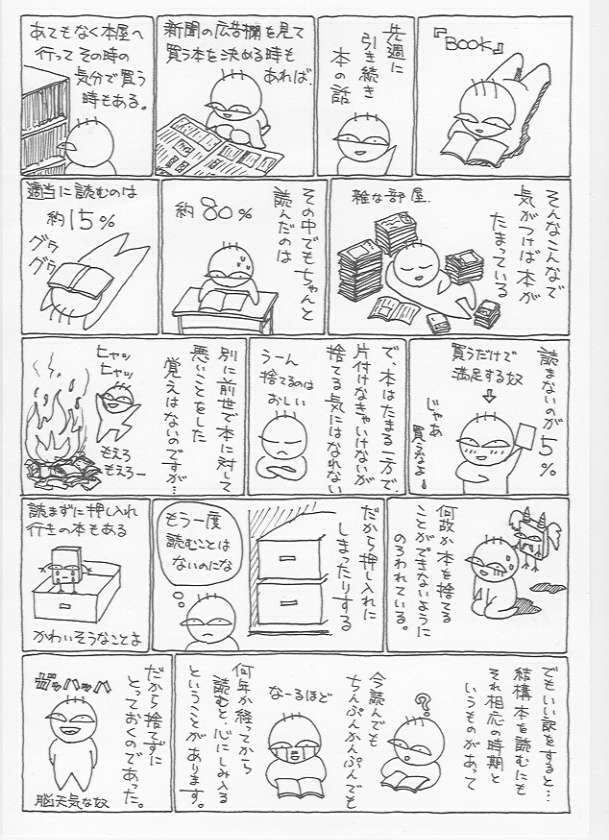 『BOOK』
先週に
引き続き
本の話
新聞の広告欄を見て
買う本を決める時も
あれば、
あてもなく本屋へ
行ってその時の
気分で買う
時もある。
そんなこんなで
気がつけば本が
たまっている
雑な部屋.
その中でもちゃんと
読んだのは
約80%
適当に読むのは
約15%
グウ
グウ
読まないのが
5%
買うだけで
満足する奴
じゃあ
買うなよ!
で、本はたまる一方で、
片付けなきゃいけないが
捨てる気にはなれない
うーん
捨てるのは
おしい
別に前世で本に対して
悪いことをした
覚えはないのですが…
ヒャッ
ヒャッ
もえろ
もえろー
何故か本を捨てる
ことができないように
のろわれている。
だから押し入れに
しまったりする
もう一度
読むことは
ないのにな
読まずに押し入れ
行きの本もある
かわいそうなことよ
でもいい訳をすると…
結構本を読むにも
それ相応の時期と
いうものがあって
?
今読んでも
ちんぷんかんぷんでも
なーるほど
何年か経ってから
読むと、心にしみ入る
ということがあります。
だから捨てずに
とっておくのであった。
ガッハッハ
脳天気な奴